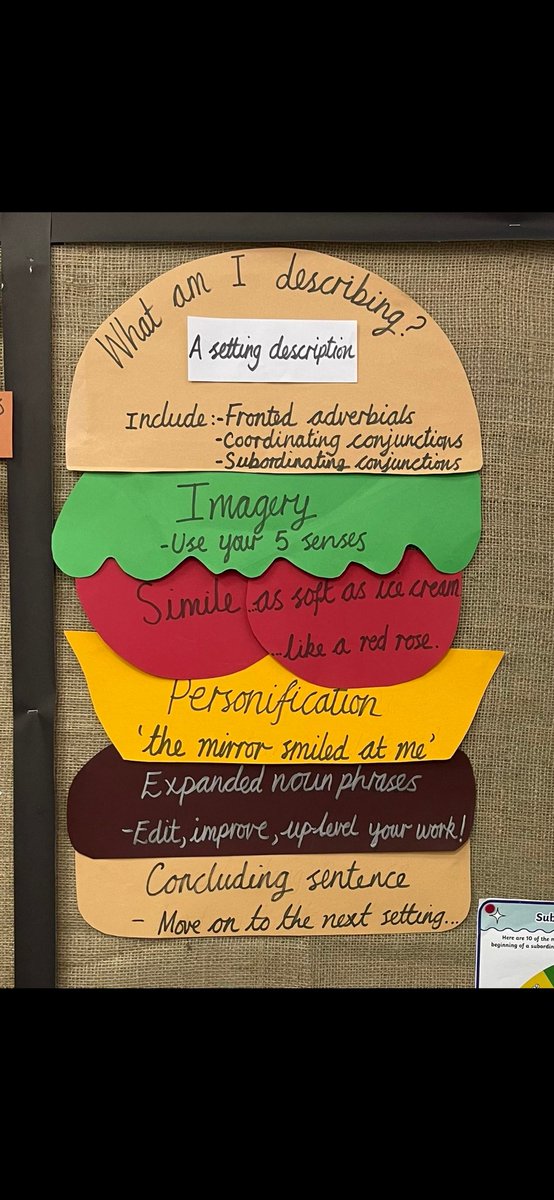 What am I describing?
A setting description
Include:-Fronted adverbials
-Coordinating conjunctions
-Subordinating conjunctions
Imagery
-Use your 5 senses
Simile ...as soft as ice cream
...like a red rose.
Personification
'the mirror smiled at me'
Expanded noun phrases
-Edit, improve, uplevel your work!
Concluding sentence
- Move on to the next setting...
Sub
Here are 10 of the
beginning of a subordin